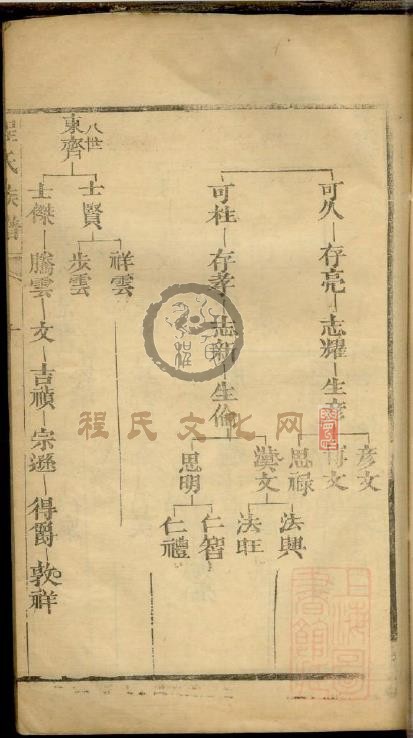 可久 存亮 志耀 生彦
彦文
博文
思禄
可柱 存孝 志新 生倫
漢文
法興
法旺
思明
仁智
仁禮
八世
東齊
士賢
祥雲
步雲
士傑 騰雲 文 吉禎 宗遜 得爵 敦祥
程氏族譜
程氏文化网
上海圖書館藏